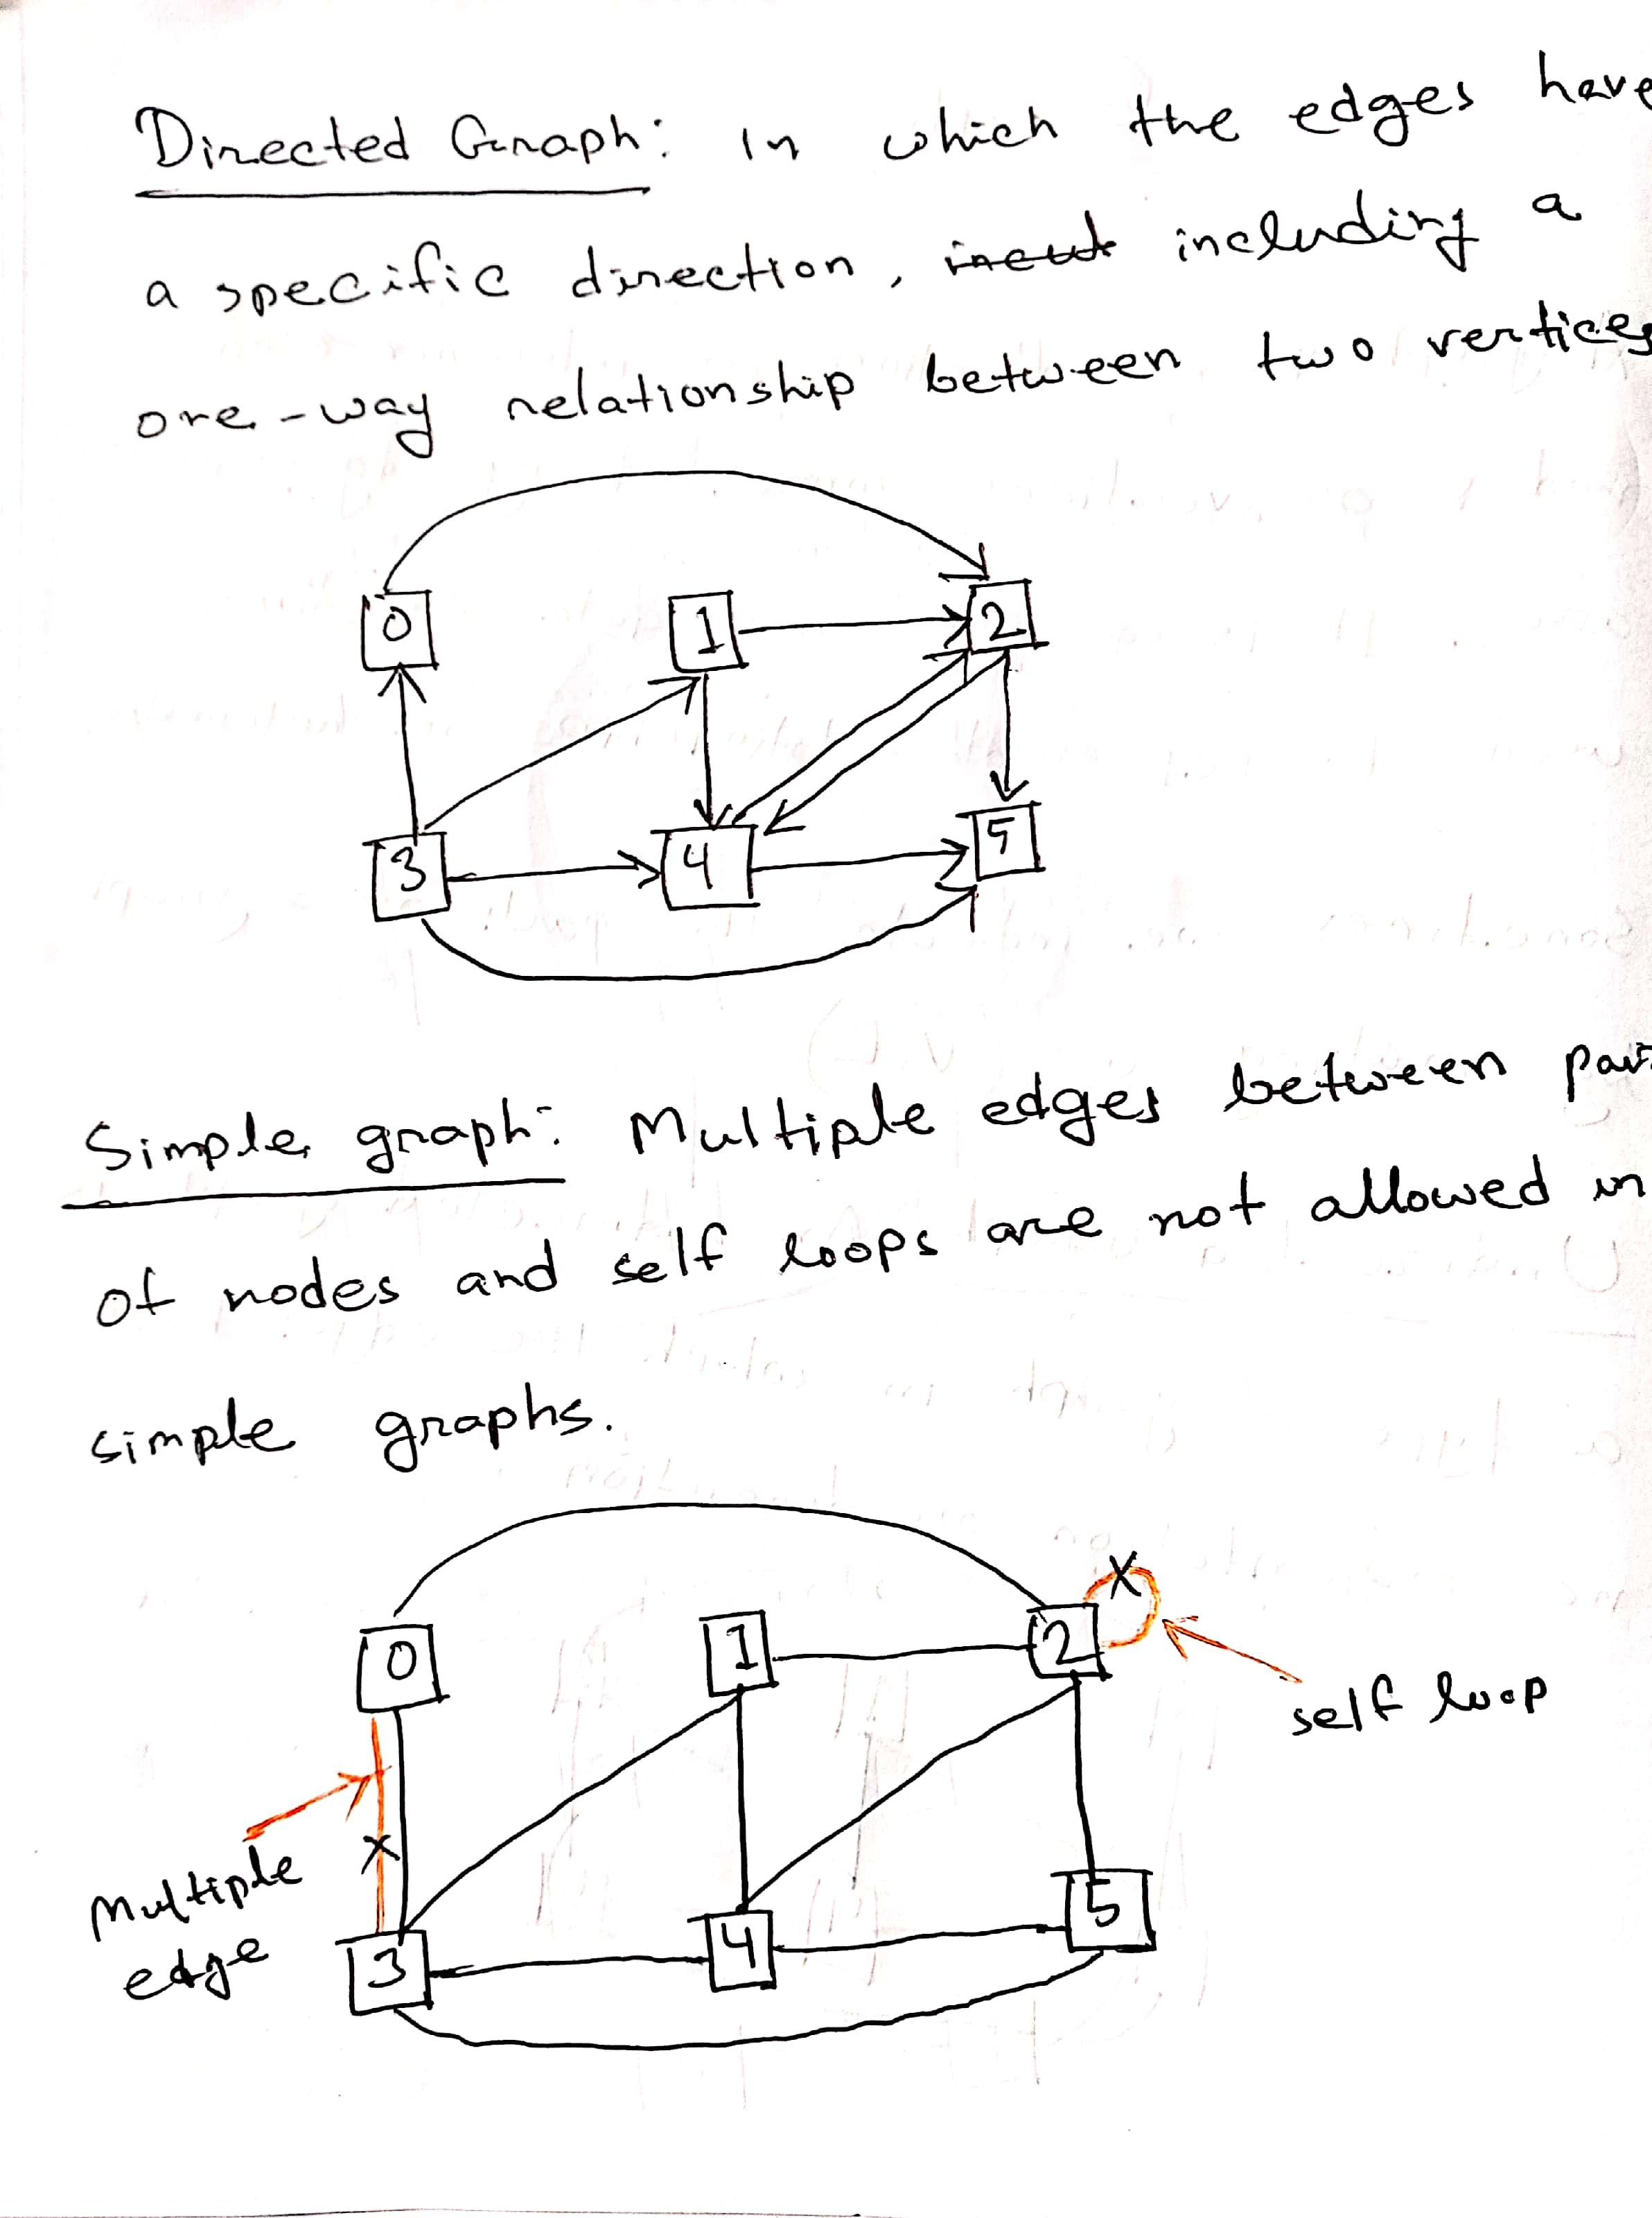 Directed Graph: In which the edges have
a specific direction, including a
one-way relationship between two vertices
0 1 2
3 4 5
Simple graph: Multiple edges between pair
of nodes and self loops are not allowed in
simple graphs.
X
0 1 2
self loop
X
Multiple
edge
3 4 5